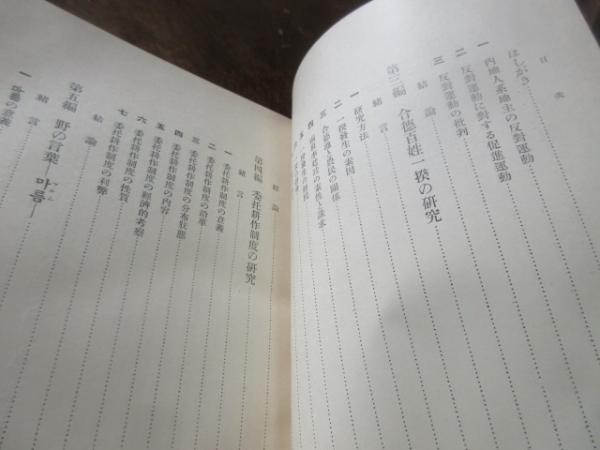 目次
はしがき
一 內地人系地主の反對運動
二 反對運動に對する促進運動
三 反對運動の批判
結論
第三編 合德百姓一揆の硏究
緖言
一 硏究方法
二 一揆發生の素因
三 合德場と農民の關係
結論
第四編 委托耕作制度の硏究
緖言
一 委托耕作制度の意義
二 委托耕作制度の沿革
三 委托耕作制度の分布狀態
四 委托耕作制度の內容
五 委托耕作制度の經濟的考察
六 委托耕作制度の性質
七 委托耕作制度の利弊
結論
第五編 野の言葉—마름—
緖言
一 마름の意義